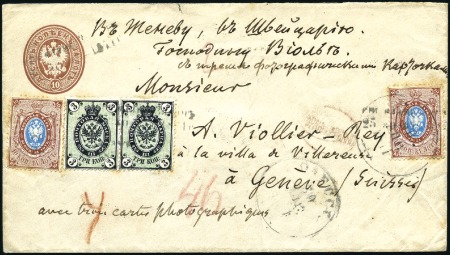 Въ Женеву, въ Швейцарію.
Господину Віольѣ.
съ тремя фотографическими карточками
Monsieur
A. Viollier-Rey
à la villa de Villereuse
à Genève (Suisse)
avec trois cartes photographiques
10
3 3
ТРИ КОП.
3 3
ТРИ КОП.
46